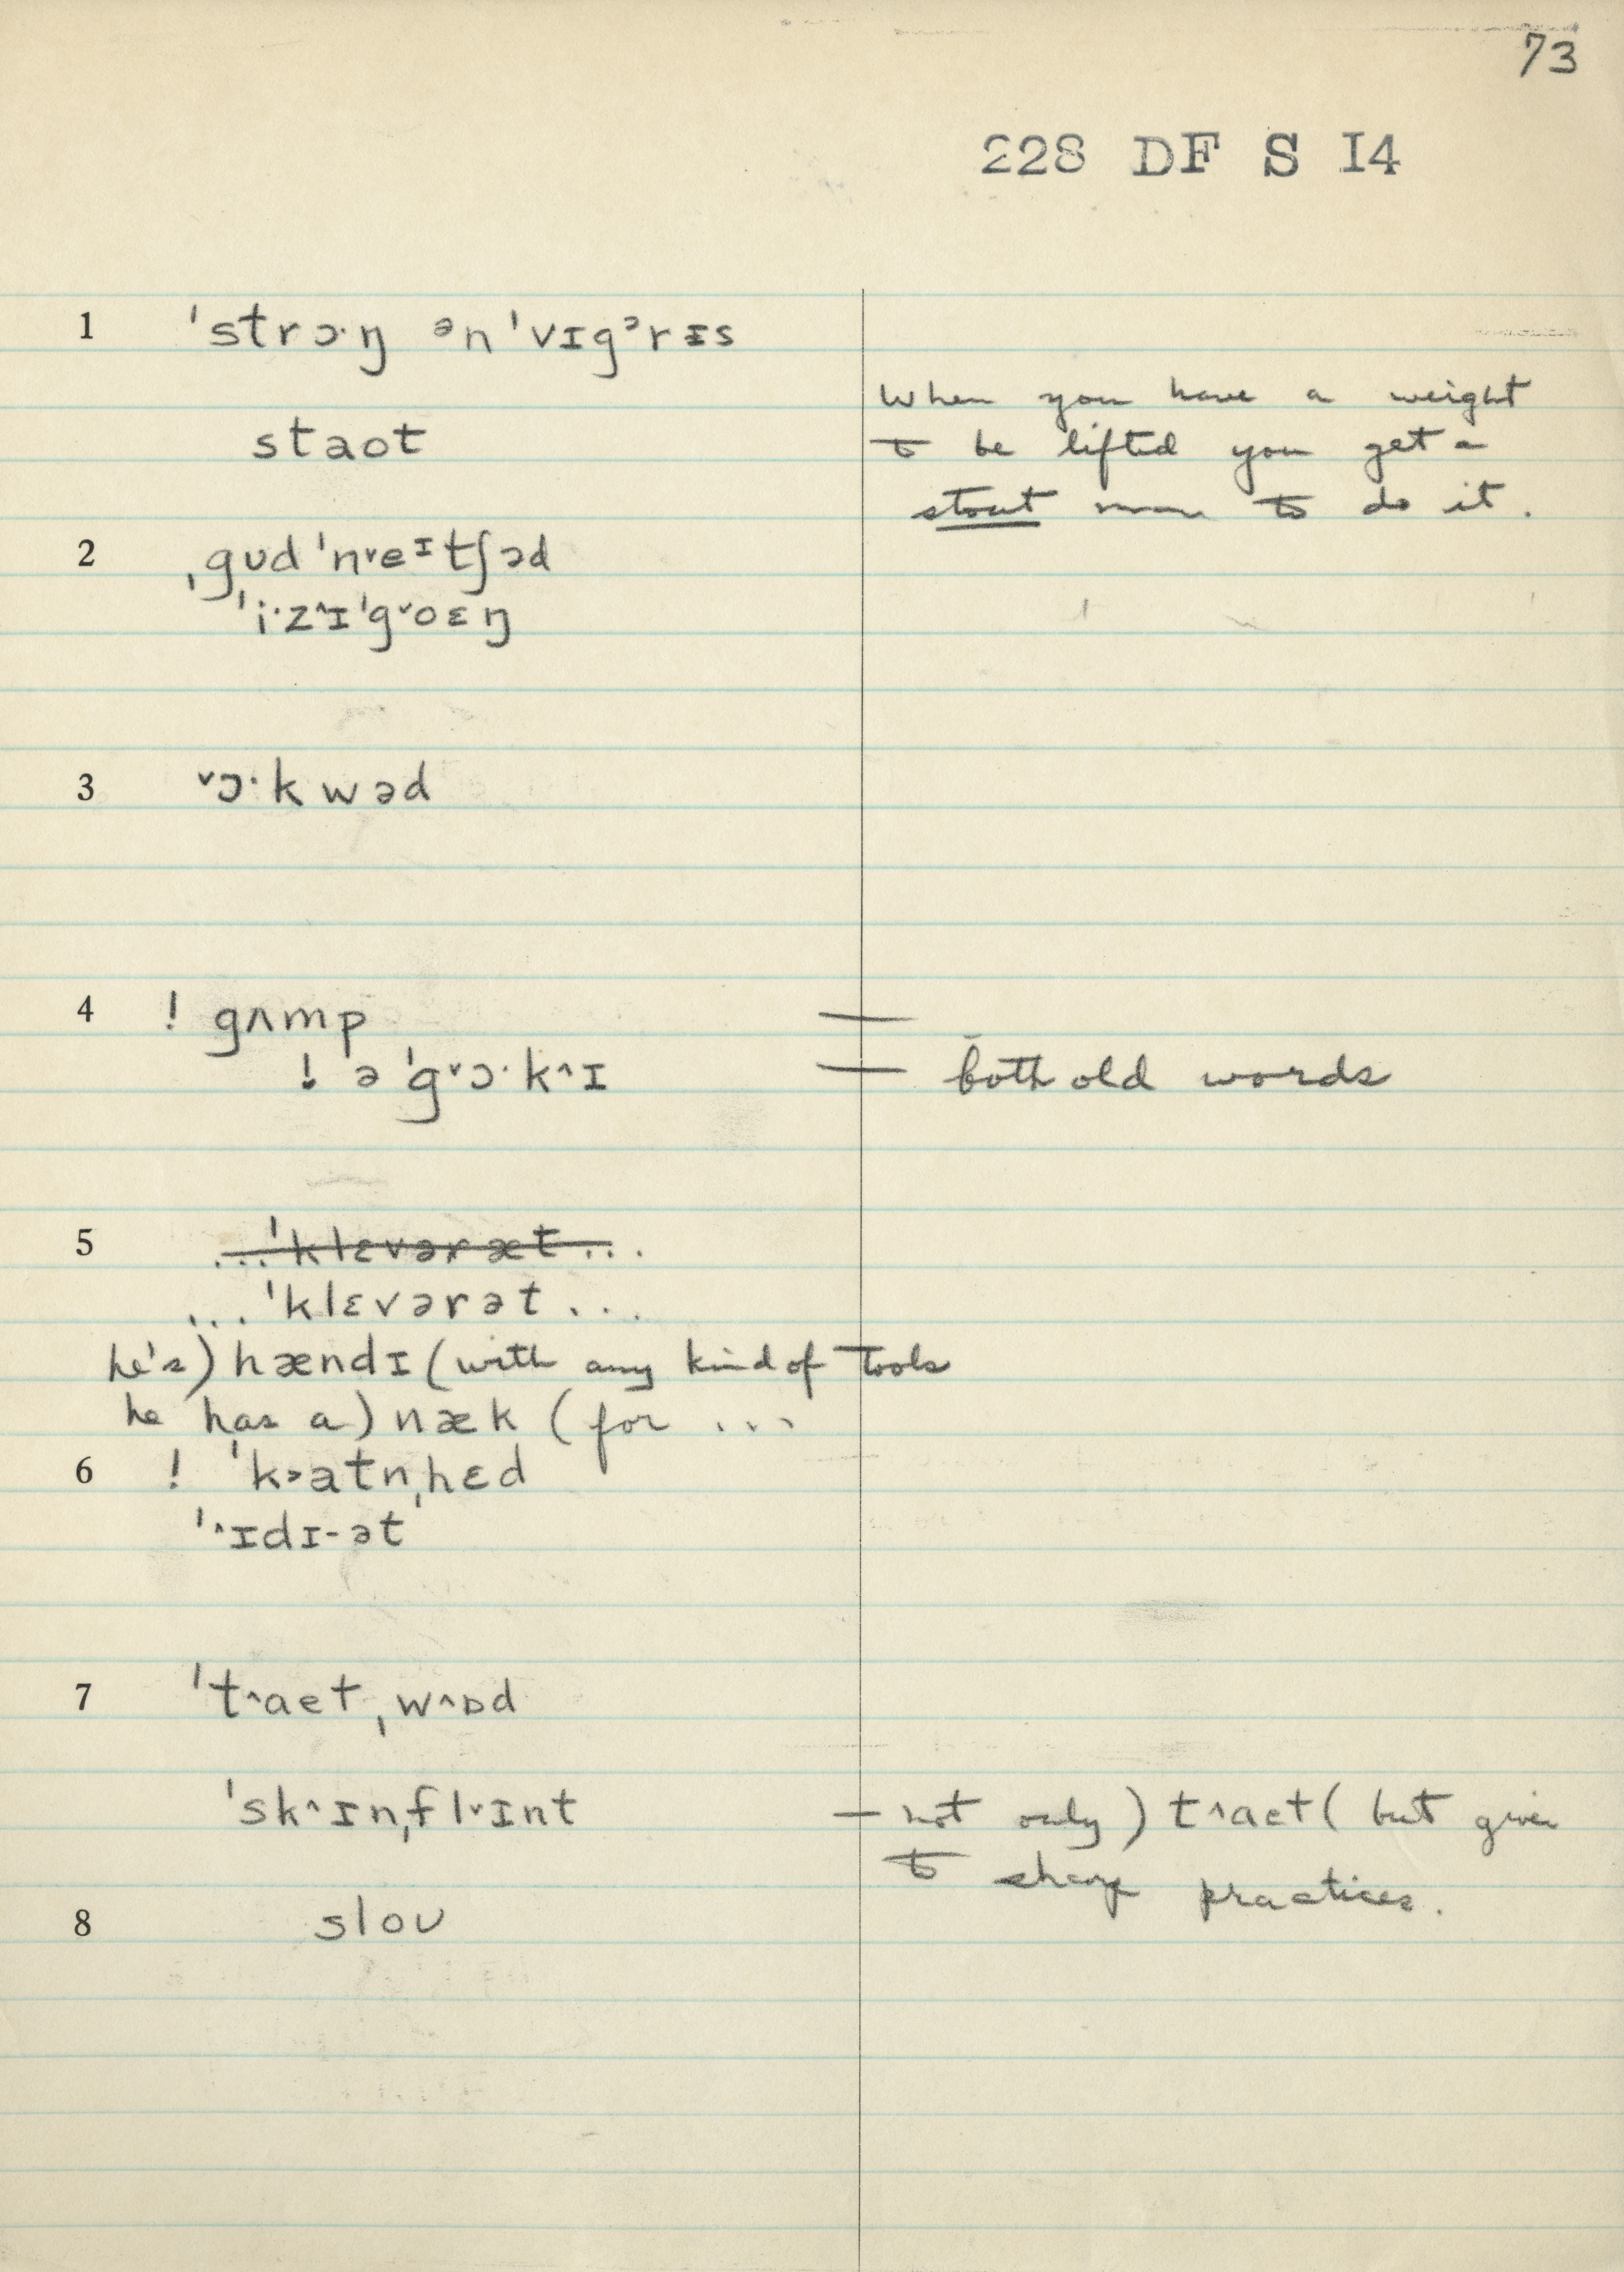 73
228 DF S I4
1 ˈstrɔ·ŋ ᵊnˈvɪgᵊrɪs
When you have a weight
staot
to be lifted you get a
stout man to do it.
2 ˌgʊdˈn˅eᶦtʃəd
ˈi·z˄ɪˈg˅oɛŋ
3 ˅ɔ·kwəd
4 ! gʌmp —
! əˈg˅ɔ·k˄ɪ — both old words
5 ...ˈklɛvəræt...
...ˈklɛvərət...
he's) hændɪ (with any kind of tools
he has a) næk (for ...
6 ! ˈk˃atnˌhɛd
ˈ˄ɪdɪ-ət
7 ˈt˄aetˌw˄ɒd
ˈsk˄ɪnˌfl˅ɪnt — not only) t˄aet (but given
to sharp practices.
8 sloʊ